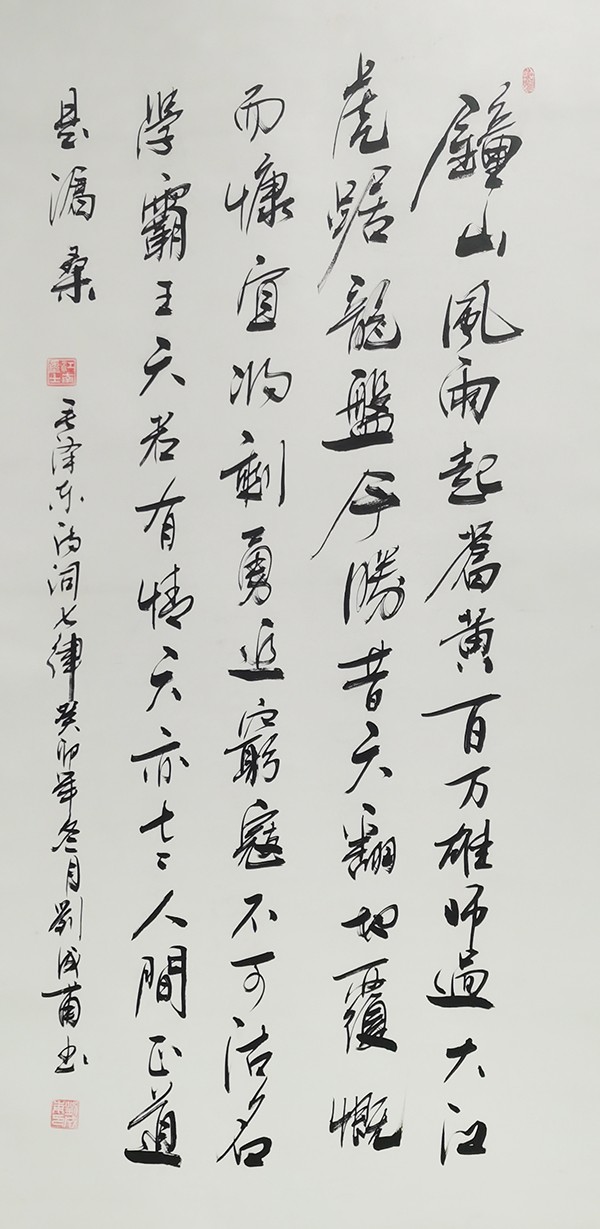 鐘山風雨起蒼黄百万雄师過大江
虎踞龍盤今勝昔天翻地覆慨
而慷宜将剩勇追窮寇不可沽名
學霸王天若有情天亦老人間正道
是滄桑
毛泽东诗词七律癸卯年冬月劉成甫书